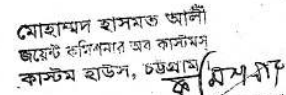 মোহাম্মদ হাসমত আলী
জয়েন্ট কমিশনার অব কাস্টমস্
কাস্টম হাউস, চট্টগ্রাম